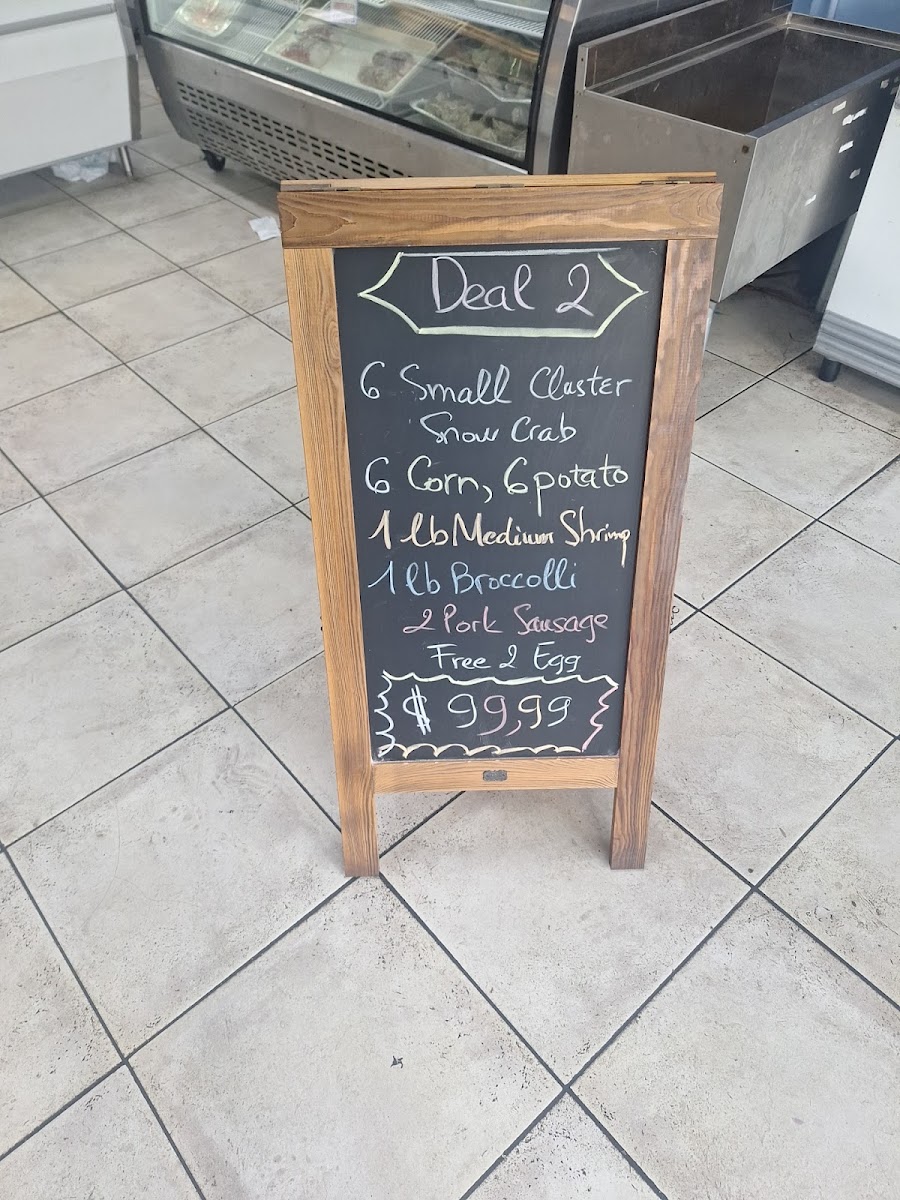 Deal 2
6 Small Cluster
Snow Crab
6 Corn, 6 potato
1 lb Medium Shrimp
1 lb Broccolli
2 Pork Sausage
Free 2 Egg
$ 99,99